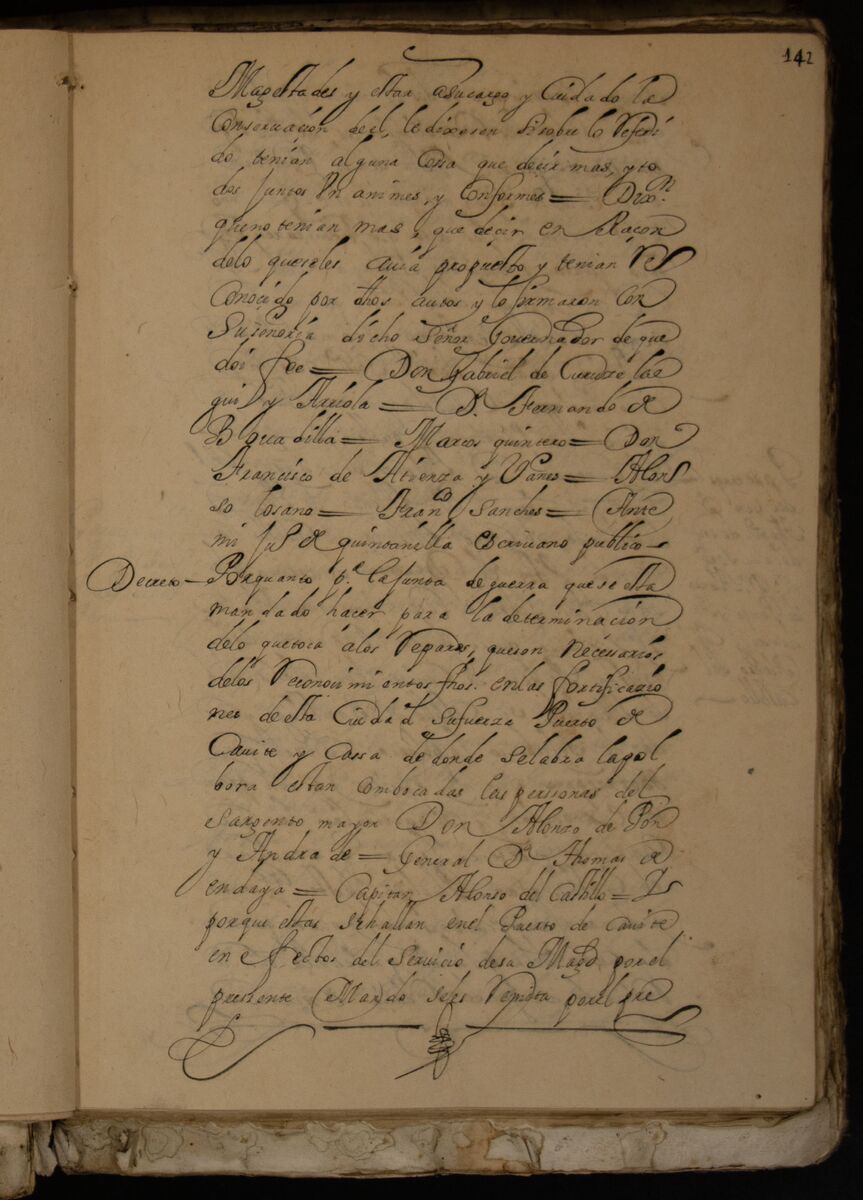 142
Magestades y estar asucargo y Cuidado la
Conseruación del, ledixesen sisobre lo Referi
do tenían alguna Cosa que decir mas, y to
dos juntos Vn animes, y Conformes = Dixn.
queno tenían mas, que decir en Raçon
delo queseles auia propuesto y tenían
Conoçido por dhos autos y lo firmaron Con
Suseñoria dicho Señor Gouernador de que
doi fee = Don Gabriel de Curuze lae
gui y Arriola = D. Fernando de
Bouadilla = Marcos quintero = Don
Francisco de Atienza y Vanes = Alon
so losano = Franco Sanches = Ante
mi Jul de quintanilla escriuano publico
Decreto — Porquanto pa. la Junta deguerra quese esta
mandado hacer para la determinación
delo quetoca alos Reparos, queson necessarios
delos Reconoçimientos fhos. enlas fortificazio
nes de esta Ciudad Sufuerza Puerto de
Cauite y Cassa de donde selabra lapol
bora estan Combocadas las personas del
sargento mayor Don Alonzo de Pon
y Andra de = General D. Thomas de
endaya = Capitan Alonso del Castillo = Y
porque estas sehallan enel Puerto de Cauite
en efectos del Seruiçio desu Magd por el
presente Mando seles Remita porel pre